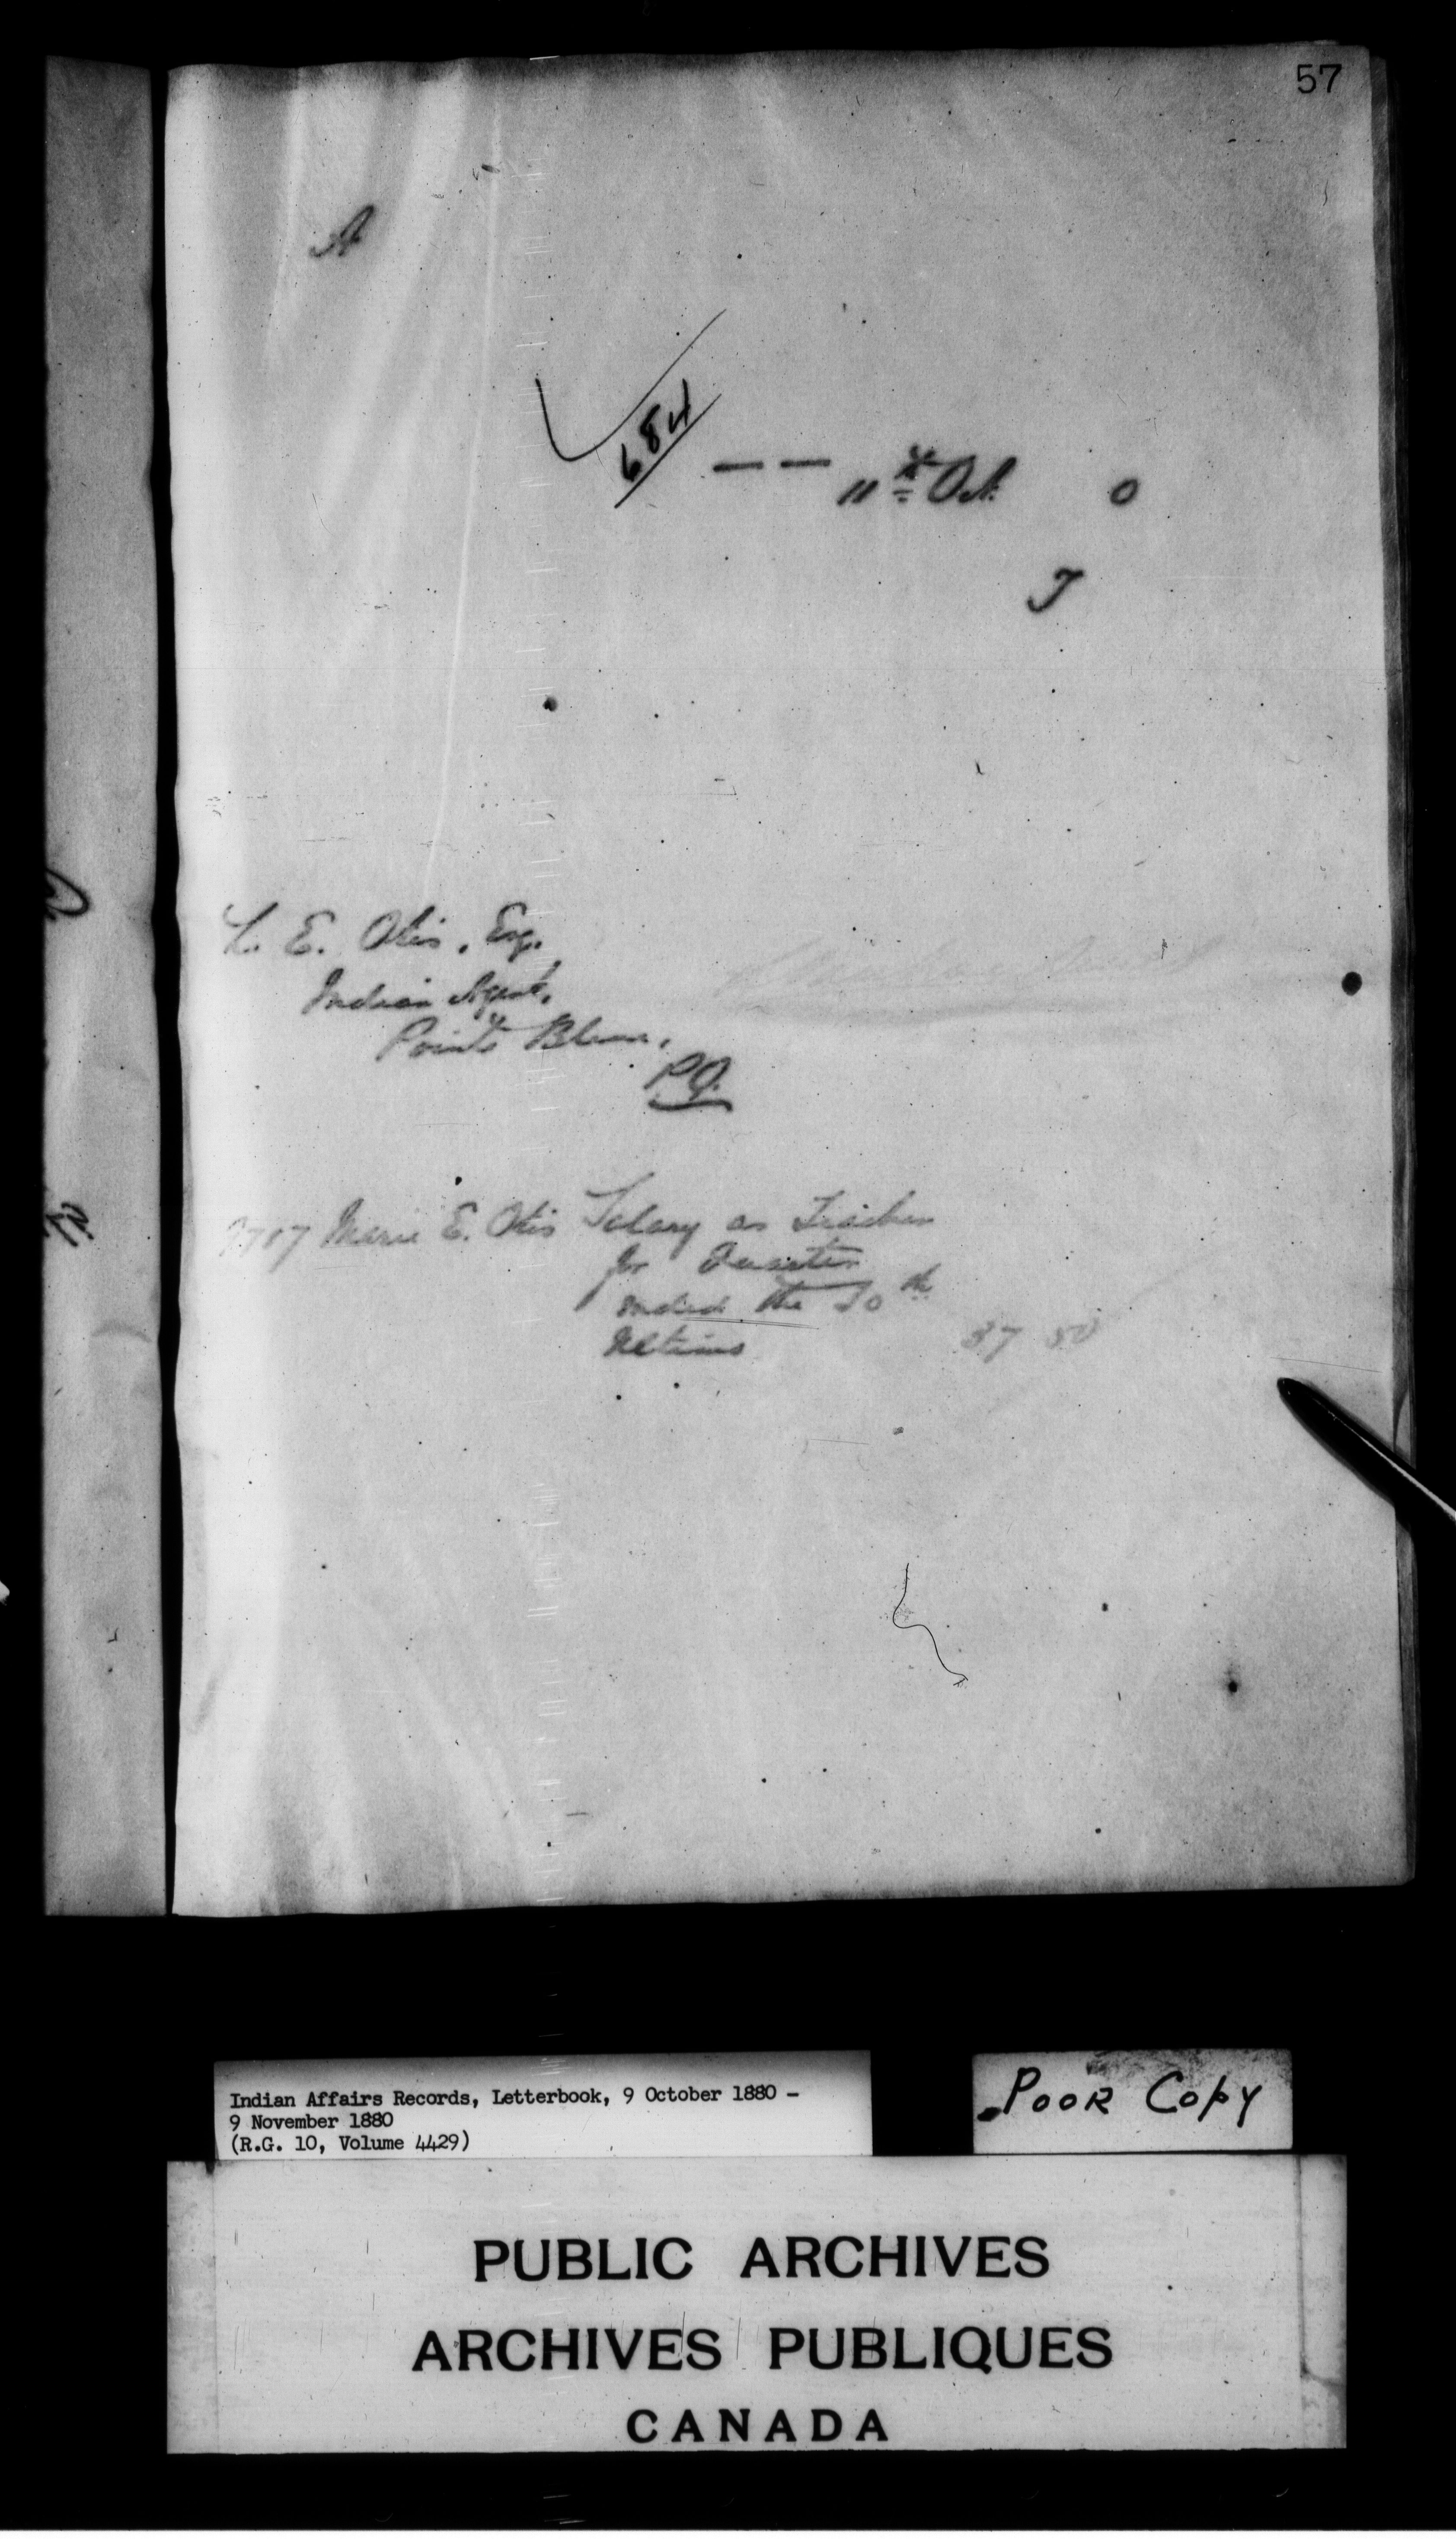 57
A
684
— — 11th Oct. 0
J
L. E. Otis, Esq.
Indian Agent,
Pointe Bleue,
P.Q.
Marie E. Otis Salary as Teacher
for Quarter
ended the 30th
Ultimo 37 50
Indian Affairs Records, Letterbook, 9 October 1880 –
9 November 1880
(R.G. 10, Volume 4429)
POOR COPY
PUBLIC ARCHIVES
ARCHIVES PUBLIQUES
CANADA